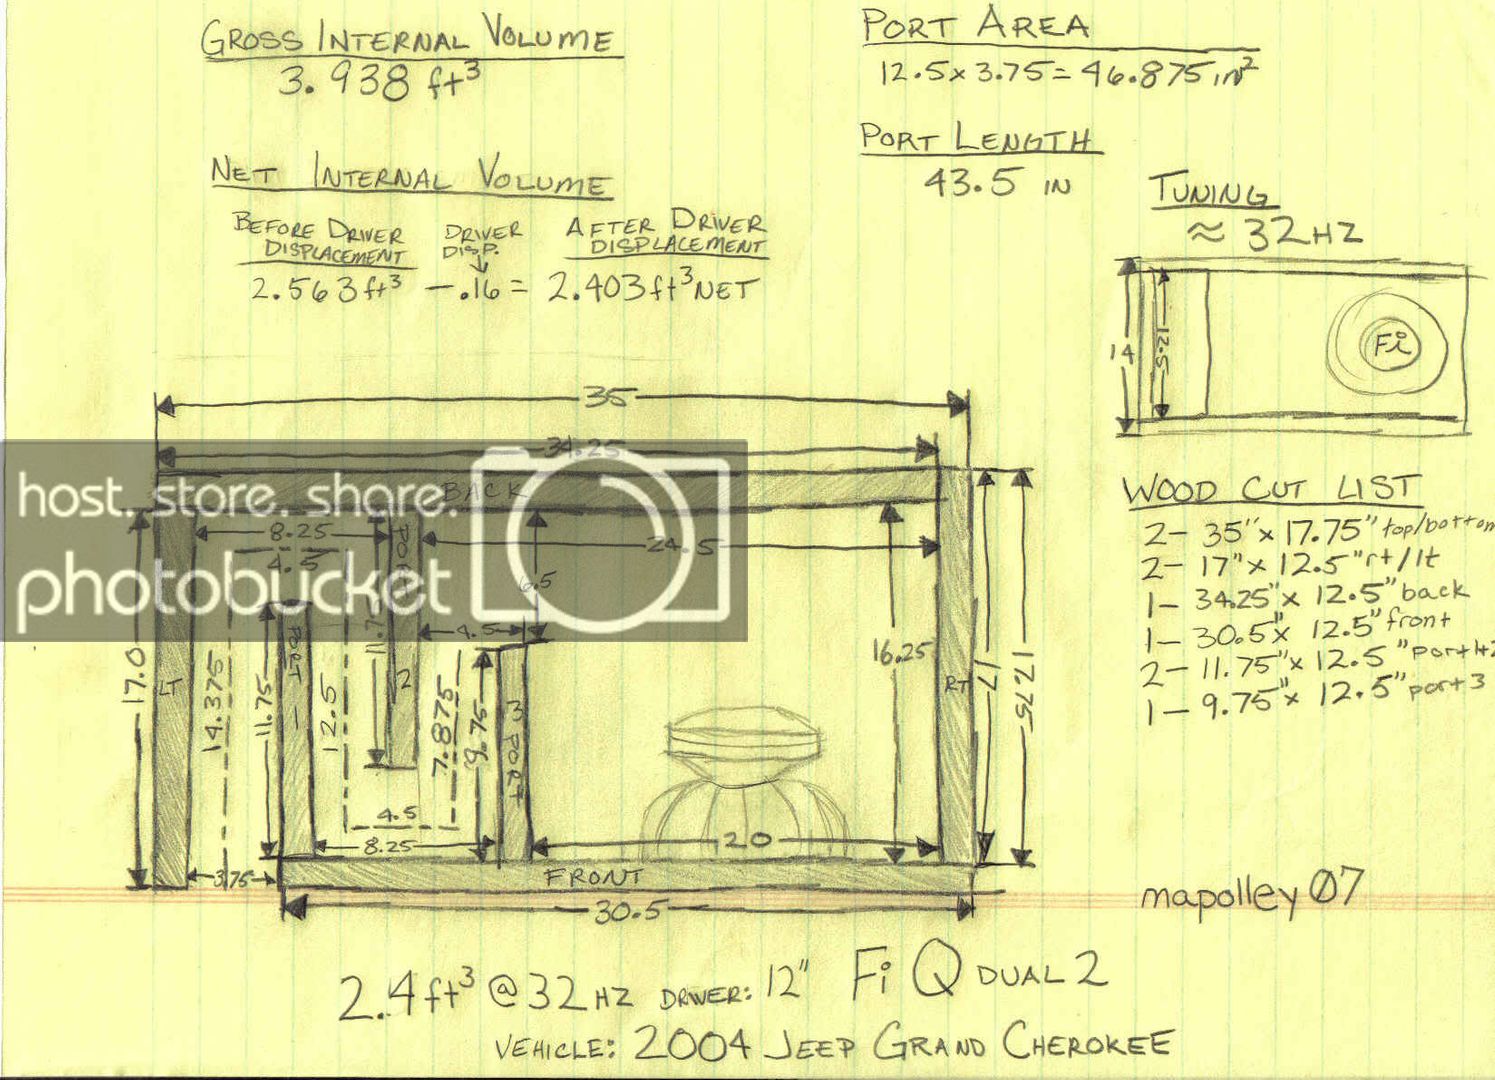 GROSS INTERNAL VOLUME
3.938 ft³
NET INTERNAL VOLUME
BEFORE DRIVER DISPLACEMENT
DRIVER DISP.
AFTER DRIVER DISPLACEMENT
2.563 ft³ - .16 = 2.403 ft³ NET
PORT AREA
12.5 x 3.75 = 46.875 in²
PORT LENGTH
43.5 IN
TUNING
≈ 32 HZ
14
12.5
Fi
35
34.25
BACK
8.25
4.5
24.5
6.5
4.5
17.0
LT
14.375
11.75
PORT 1
12.5
11.75
2
7.875
9.75
3 PORT
16.25
RT
17
17.75
4.5
8.25
20
3.75
FRONT
30.5
WOOD CUT LIST
2- 35" x 17.75" top/bottom
2- 17" x 12.5" rt/lt
1- 34.25" x 12.5" back
1- 30.5" x 12.5" front
2- 11.75" x 12.5" port 1+2
1- 9.75" x 12.5" port 3
mapolley 07
2.4 ft³ @ 32 HZ DRIVER: 12" Fi Q DUAL 2
VEHICLE: 2004 JEEP GRAND CHEROKEE
host. store. share.
photobucket